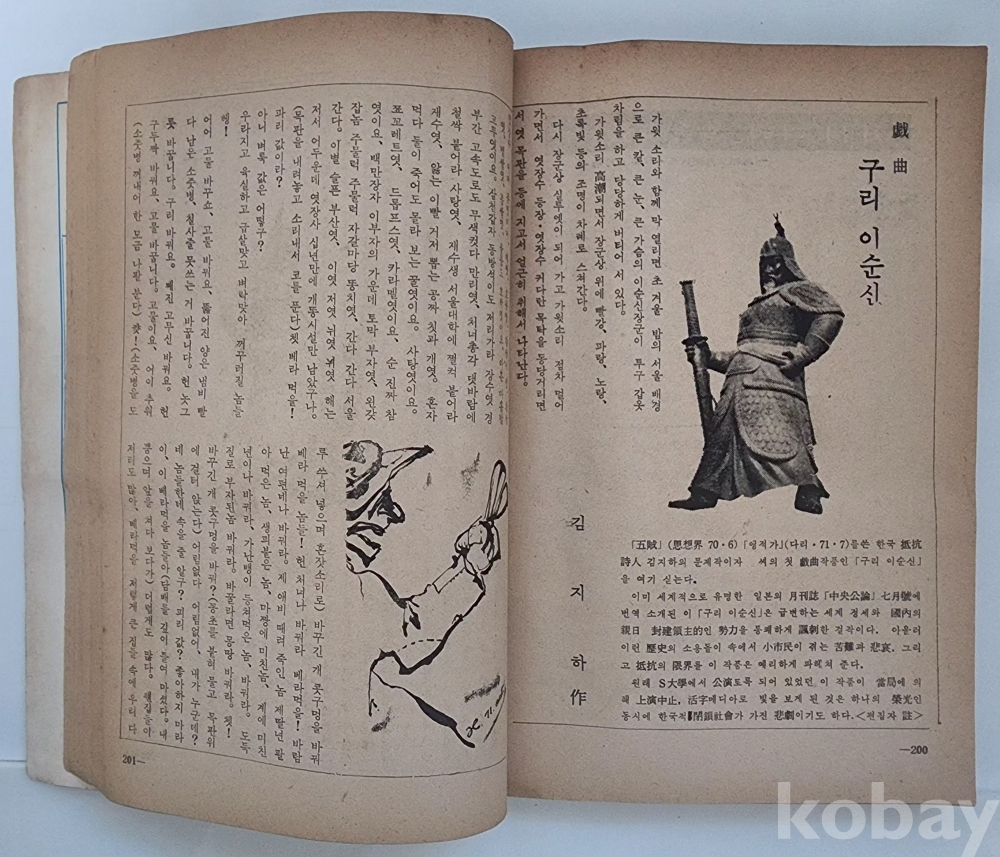 戱曲
구리 이순신
김지하 作
가윗 소리와 함께 막 열리면 초 겨울 밤의 서울 배경
으로 큰 칼, 큰 눈, 큰 가슴의 이순신장군이 투구 갑옷
차림을 하고 당당하게 버티어 서 있다.
가윗소리 高潮되면서 장군상 위에 빨강, 파랑, 노랑,
초록빛 등의 조명이 차례로 스쳐간다.
다시 장군상 실루엣이 되어 가고 가윗소리 점차 멀어
가면서 엿장수 등장·엿장수 커다란 목탁을 동당거리면
서 엿 목판을 등에 지고서 얼근히 취해서 나타난다.
「五賊」(思想界 70·6)「앵적가」(다리·71·7)를쓴 한국 抵抗
詩人 김지하의 문제작이자 씨의 첫 戱曲작품인 「구리 이순신」
을 여기 싣는다.
이미 세계적으로 유명한 일본의 月刊誌「中央公論」七月號에
번역 소개된 이 「구리 이순신」은 급변하는 세계 정세와 國內의
親日 封建領主的인 勢力을 통쾌하게 諷刺한 걸작이다. 아울러
이런 歷史의 소용돌이 속에서 小市民이 겪는 苦難과 悲哀, 그리
고 抵抗의 限界를 이 작품은 예리하게 파헤쳐 준다.
원래 S大學에서 公演토록 되어 있었던 이 작품이 當局에 의
해 上演中止, 活字메디아로 빛을 보게 된 것은 하나의 榮光인
동시에 한국적 閉鎖社會가 가진 悲劇이기도 하다.<편집자 註>
—200
부간 고속도로도 무색컷다 만리엿, 처녀총각 댓바람에
철싹 붙어라 사탕엿, 재수생 서울대학에 쩔컥 붙어라
재수엿, 앓는 이빨 거저 뽑는 공짜 칫과 개엿, 혼자
먹다 둘이 죽어도 몰라 보는 꿀엿이요. 사탕엿이요.
쬬꼬레트엿, 드롭프스엿, 카라멜엿이요, 순 진짜 참
엿이요, 백만장자 이부자의 가운데 토막 부자엿, 왼갖
잡놈 주물럭 주물럭 자갈마당 똥치엿, 간다 간다 서울
간다. 이별 슬픈 부산엿, 이엿 저엿 뉘엿 뉘엿 해는
저서 어두운데 엿장사 십년만에 개통시설만 남았구나.
(목판을 내려놓고 소리내서 코를 푼다)쳇 베라 먹을!
파리 값이라?
아니 벼룩 값은 어떻구?
우라지고 육실하고 급살맞고 벼락맞아 꺼꾸러질 놈들
헹!
어어 고물 바꾸쇼, 고물 바꿔요, 뚫어진 양은 냄비 빨
다 남은 소줏병, 철사줄 못쓰는 거 바꿉니다. 헌 놋그
릇 바꿉니다. 구리 바꿔요. 째진 고무신 바꿔요. 헌
구두짝 바꿔요, 고물 바꿉니다, 고물이요, 어이 추워
(소줏병 꺼내어 한 모금 나팔 분다) 캿!(소줏병을 도
루 쑤셔 넣으며 혼잣소리로) 바꾸긴 개 콧구멍을 바꿔
베라 먹을 놈들! 헌 처녀나 바꿔라 베라먹을! 바람
난 여편네나 바꿔라. 제 애비 때려 죽인 놈 제딸년 팔
아 먹은 놈, 생피붙은 놈, 마짱에 미친놈, 계에 미친
년이나 바꿔라, 가난뱅이 등쳐먹은 놈, 바꿔라, 도둑
질로 부자된놈 바꿔라, 바꿀라면 몽땅 바꿔라. 쳇!
바꾸긴 개 콧구멍을 바꿔?(동초를 붙혀 물고 목판위
에 걸터 앉는다) 어림없다 어림없어, 내가 누군데?
네 놈들한테 속을 줄 알구? 피리 값? 좋아하지 마라
이, 이 베라먹을 놈들아(담배를 깊이 들여 마셨다. 내
품으며 앞을 쳐다 보다가) 더럽게도 많다. 웬집들이
저리도 많아, 베라먹을 저렇게 큰 집들 속에 우리 다
201—
kobay